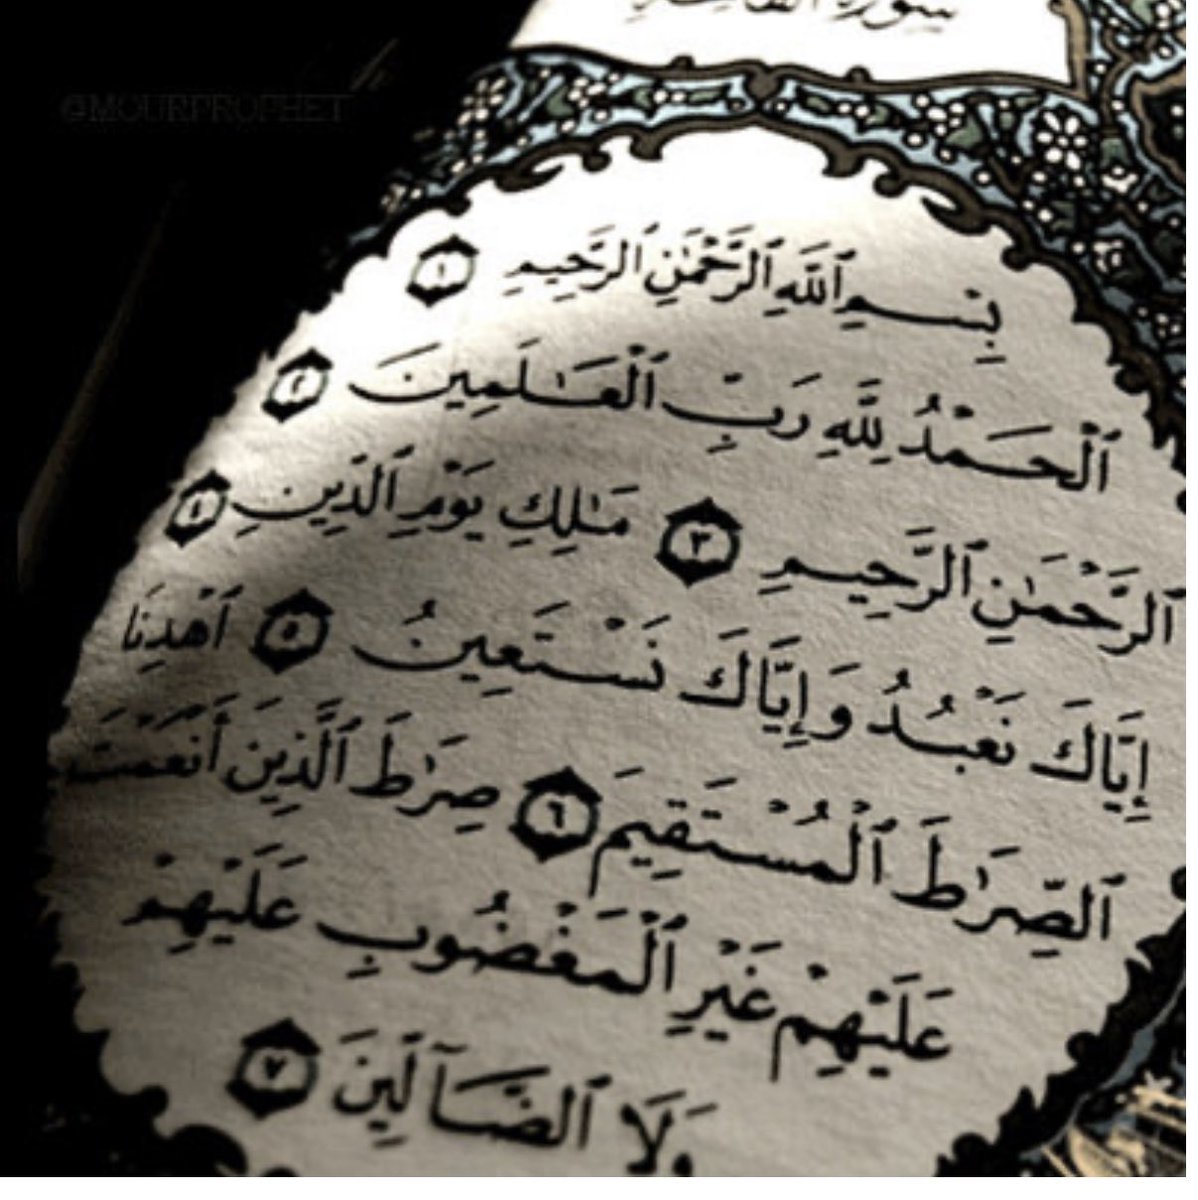 سورة الفاتحة
@MOURPROPHET
بِسْمِ ٱللَّهِ ٱلرَّحْمَٰنِ ٱلرَّحِيمِ ١
ٱلْحَمْدُ لِلَّهِ رَبِّ ٱلْعَٰلَمِينَ ٢
ٱلرَّحْمَٰنِ ٱلرَّحِيمِ ٣ مَٰلِكِ يَوْمِ ٱلدِّينِ ٤
إِيَّاكَ نَعْبُدُ وَإِيَّاكَ نَسْتَعِينُ ٥ ٱهْدِنَا
ٱلصِّرَٰطَ ٱلْمُسْتَقِيمَ ٦ صِرَٰطَ ٱلَّذِينَ أَنْعَمْتَ
عَلَيْهِمْ غَيْرِ ٱلْمَغْضُوبِ عَلَيْهِمْ
وَلَا ٱلضَّآلِّينَ ٧